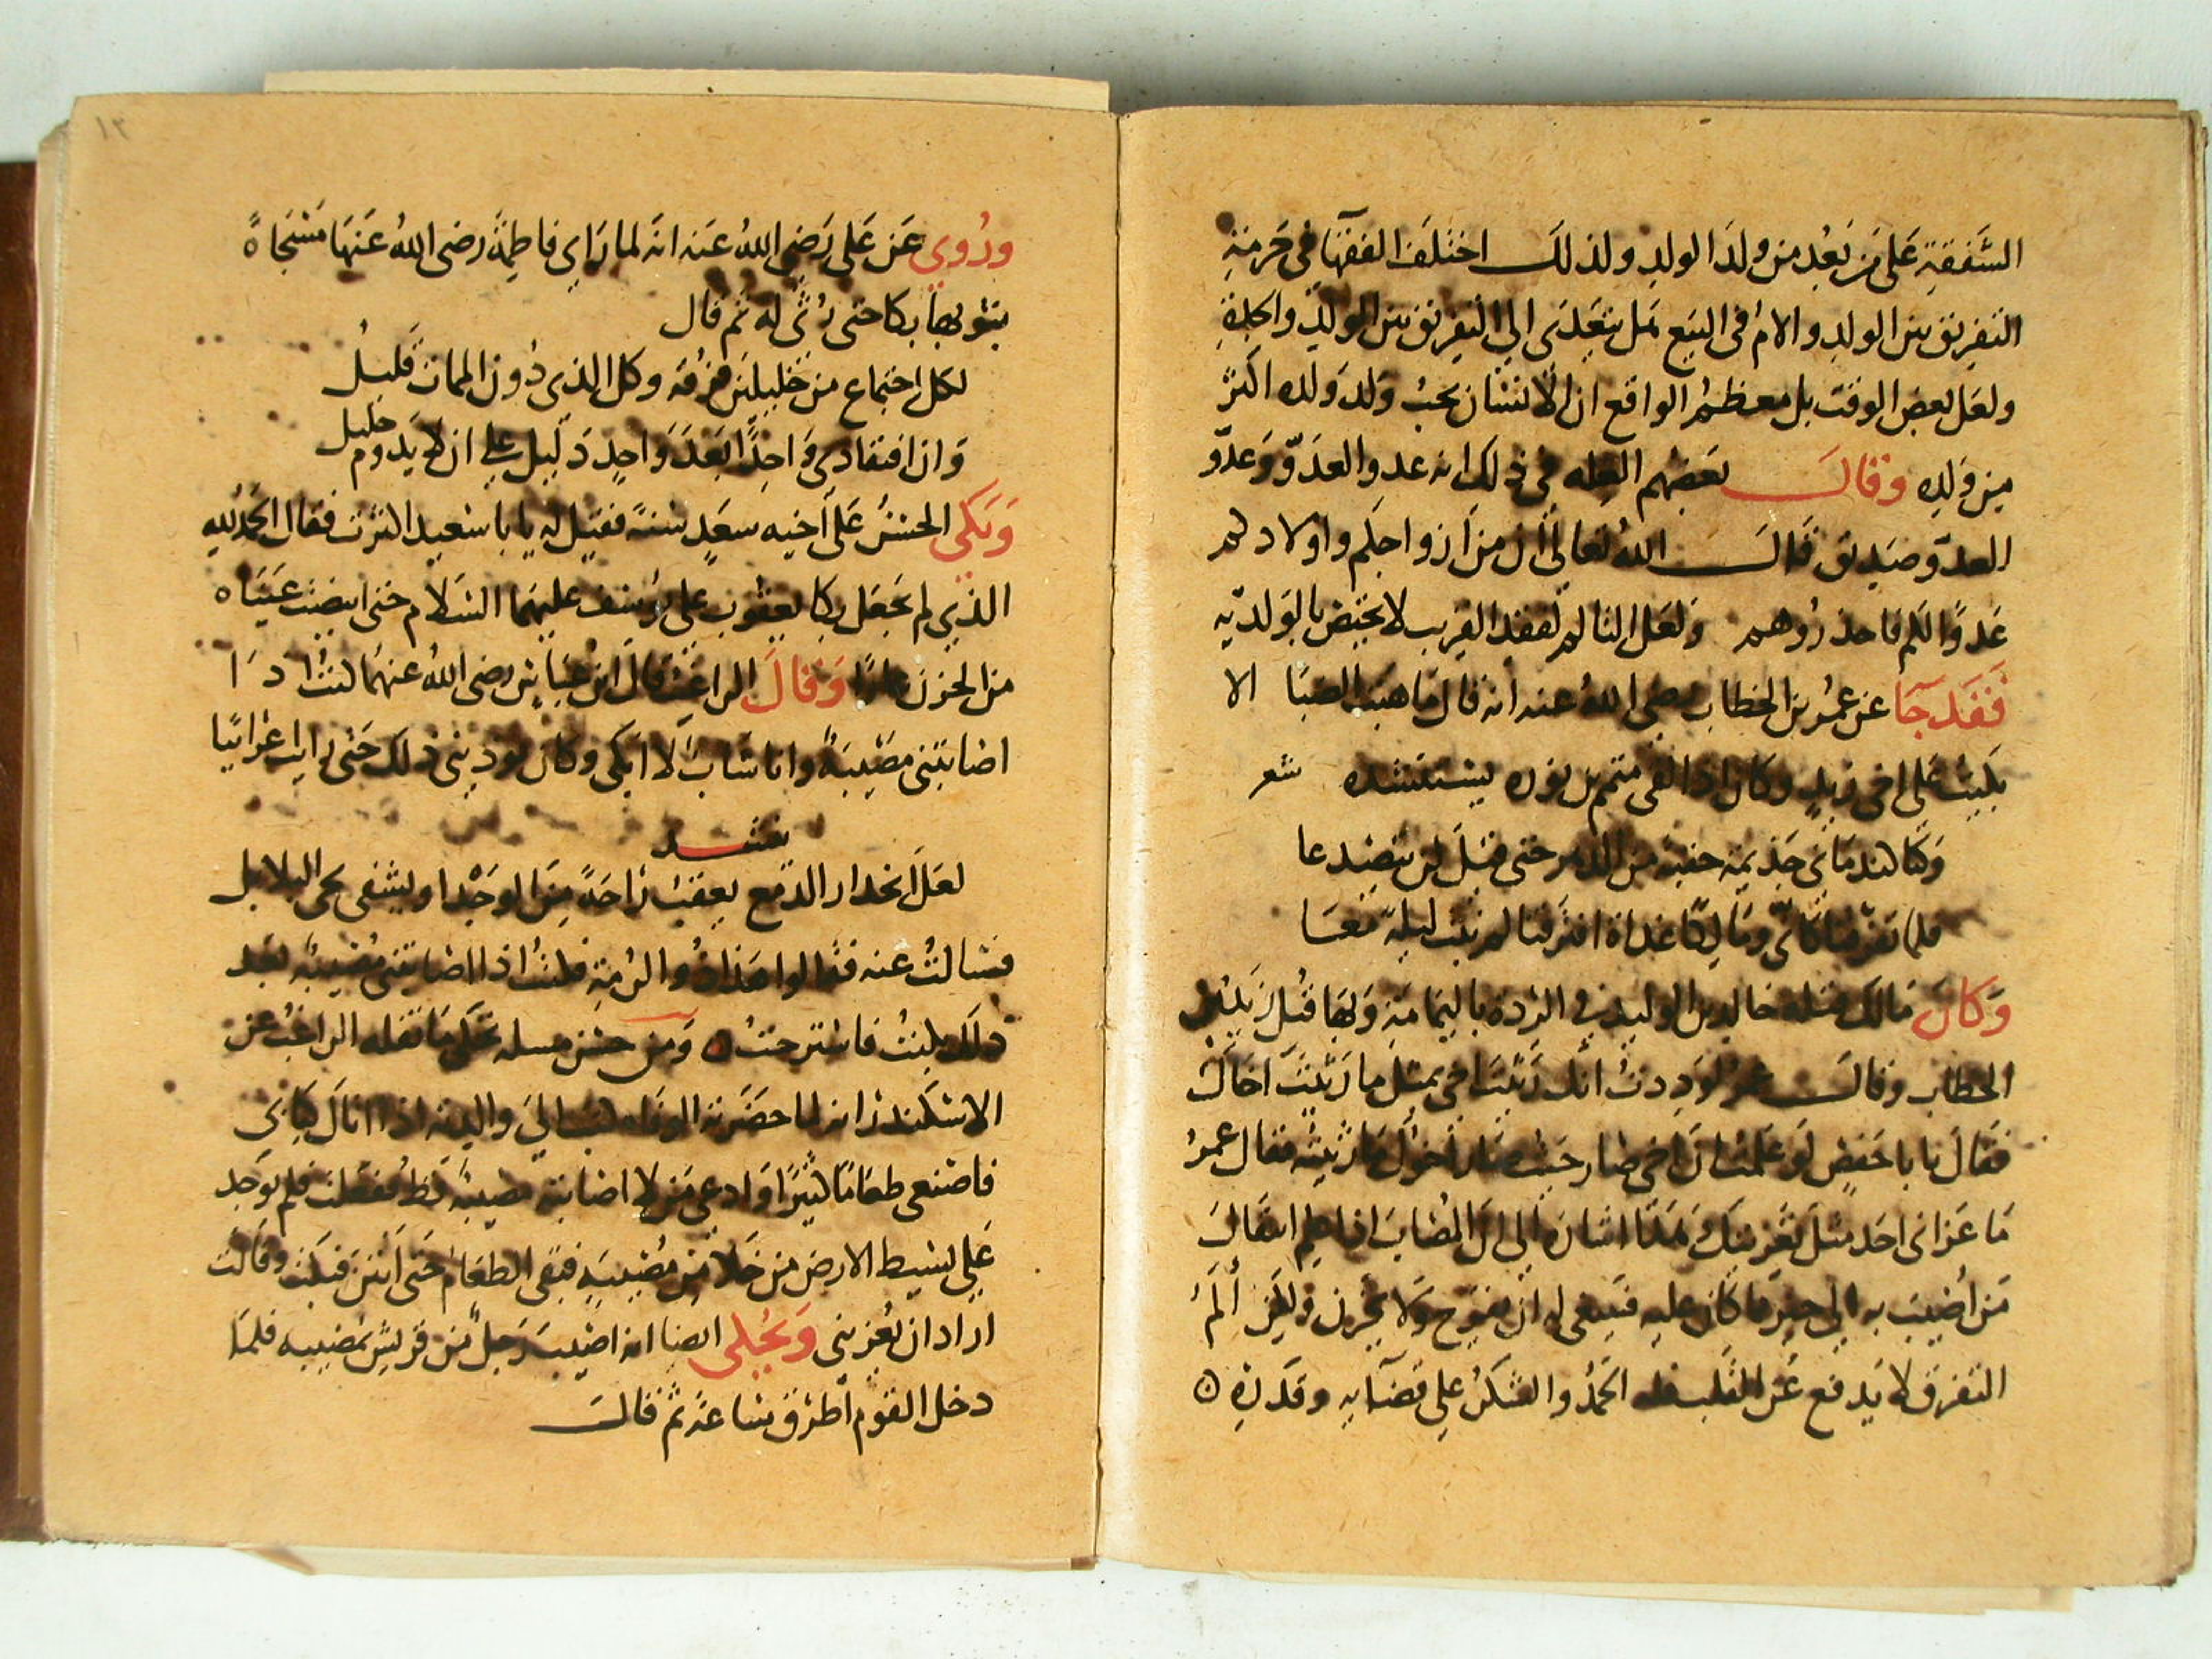 الشفقة على من بعد من ولد الولد ولذلك اختلف الفقها في حرمة
التفريق بين الولد والام في البيع هل يتعدى الى التفريق بين الولد والجدة
ولعل بعض الوقت بل معظم الواقع ان الانسان يحب ولد ولده اكثر
من ولده وقال بعضهم العله في ذلك انه عدو العدو وعدو
العدو صديق قال الله تعالى ان من ازواجكم واولادكم
عدوا لكم فاحذروهم ولعل التالم لفقد القريب لا يختص بالولديه
فقد جا عن عمر بن الخطاب رضي الله عنه انه قال ما هبت الصبا الا
بكيت على اخي زيد وكان اذا لقى متمم بن نويره يستنشده شعر
وكنا كندماني جذيمة حقبة من الدهر حتى قيل لن يتصدعا
فلما تفرقنا كاني ومالكا غداة افترقنا لم نبت ليلة معا
وكان مالك قتله خالد بن الوليد في الردة باليمامة وبها قتل زيد بن
الخطاب وقال عمر لوددت انك رثيت اخي بمثل ما رثيت اخاك
فقال يابا حفص لو علمت ان اخي صار حيث صار اخوك ما رثيته فقال عمر
ما عزاني احد مثل تعزيتك هذا اشارة الى ان المصاب اذا علم انتقال
من اصيب به الى خير مما كان عليه فينبغى له ان يفرح ولا يحزن ولكن ألم
التفرق لا يدفع عن القلب فله الحمد والشكر على قضآيه وقدره ه
١٢
وروي عن على رضي الله عنه انه لما راى فاطمة رضى الله عنها مسجاة
بثوبها بكا حتى رثى له ثم قال
لكل اجتماع من خليلين فرقة وكل الذى دون الممات قليل
وان افتقادى واحدا بعد واحد دليل على ان لا يدوم خليل
وبكى الحسن على اخيه سعيد سنة فقيل له يا با سعيد اكثرت فقال الحمد لله
الذي لم يجعل بكا يعقوب على يوسف عليهما السلام حتى ابيضت عيناه
من الحزن عارا وقال الراغب قال ابن عباس رضى الله عنهما كنت اذا
اصابتني مصيبة وانا شاب لا ابكى وكان يوذيني ذلك حتى رايت اعرابيا
ينشد
لعل انحدار الدمع يعقب راحة من الوجد او يشفى نجي البلابل
فسالت عنه فقالوا هذا ذو الرمة فكنت اذا اصابتنى مصيبة بعد
ذلك بكيت فاسترحت ه ومن حسن مسله تحكى ما نقله الراغب عن
الاسكندر انه لما حضرته الوفاه كتب الى والدته اذا اتاك كتابى
فاصنعي طعاما كثيرا وادعي من لا اصابته مصيبة قط ففعلت فلم يوجد
على بسيط الارض من خلا من مصيبة فبقى الطعام حتى انتن فبكت وقالت
اراد ان يعزيني وحكى ايضا انه اصيب رجل من قريش بمصيبه فلما
دخل القوم اطرق ساعة ثم قال